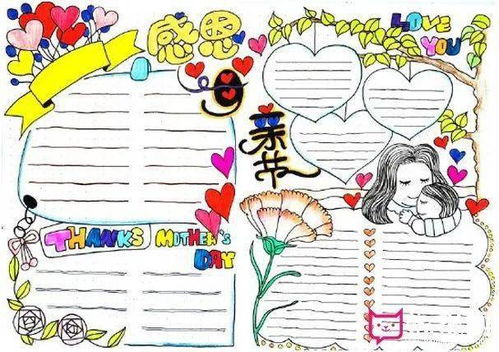 感恩
母
亲
节
LOVE
YOU
THANKS MOTHER'S
DAY